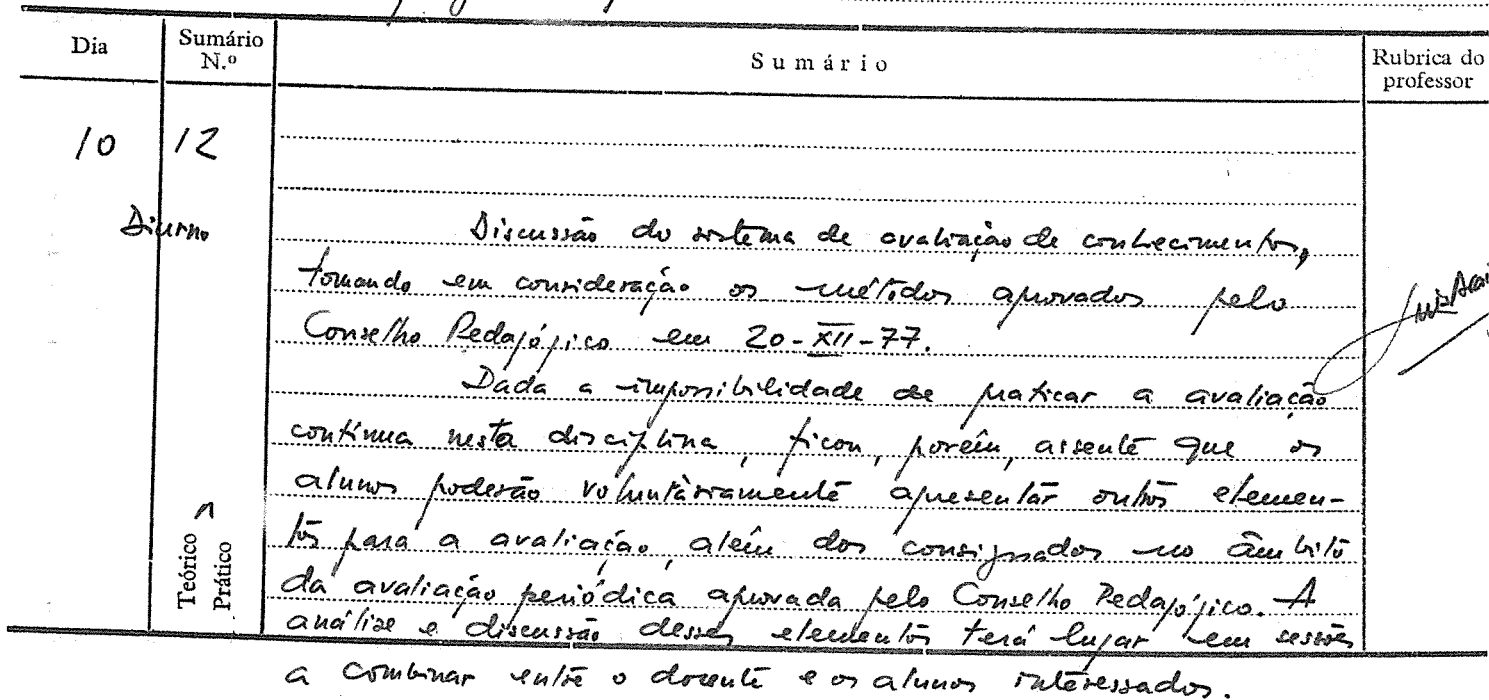 Dia Sumário N.º Sumário Rubrica do professor
10 12
Diurno Discussão do sistema de avaliação de conhecimentos,
tomando em consideração os métodos aprovados pelo
Conselho Pedagógico em 20-XII-77.
Dada a impossibilidade de praticar a avaliação
contínua nesta disciplina, ficou, porém, assente que os
alunos poderão voluntàriamente apresentar outros elemen-
tos para a avaliação, além dos consignados no âmbito
da avaliação periódica aprovada pelo Conselho Pedagógico. A
análise e discussão desses elementos terá lugar em sessões
a combinar entre o docente e os alunos interessados.
Teórico
Prático
Luís